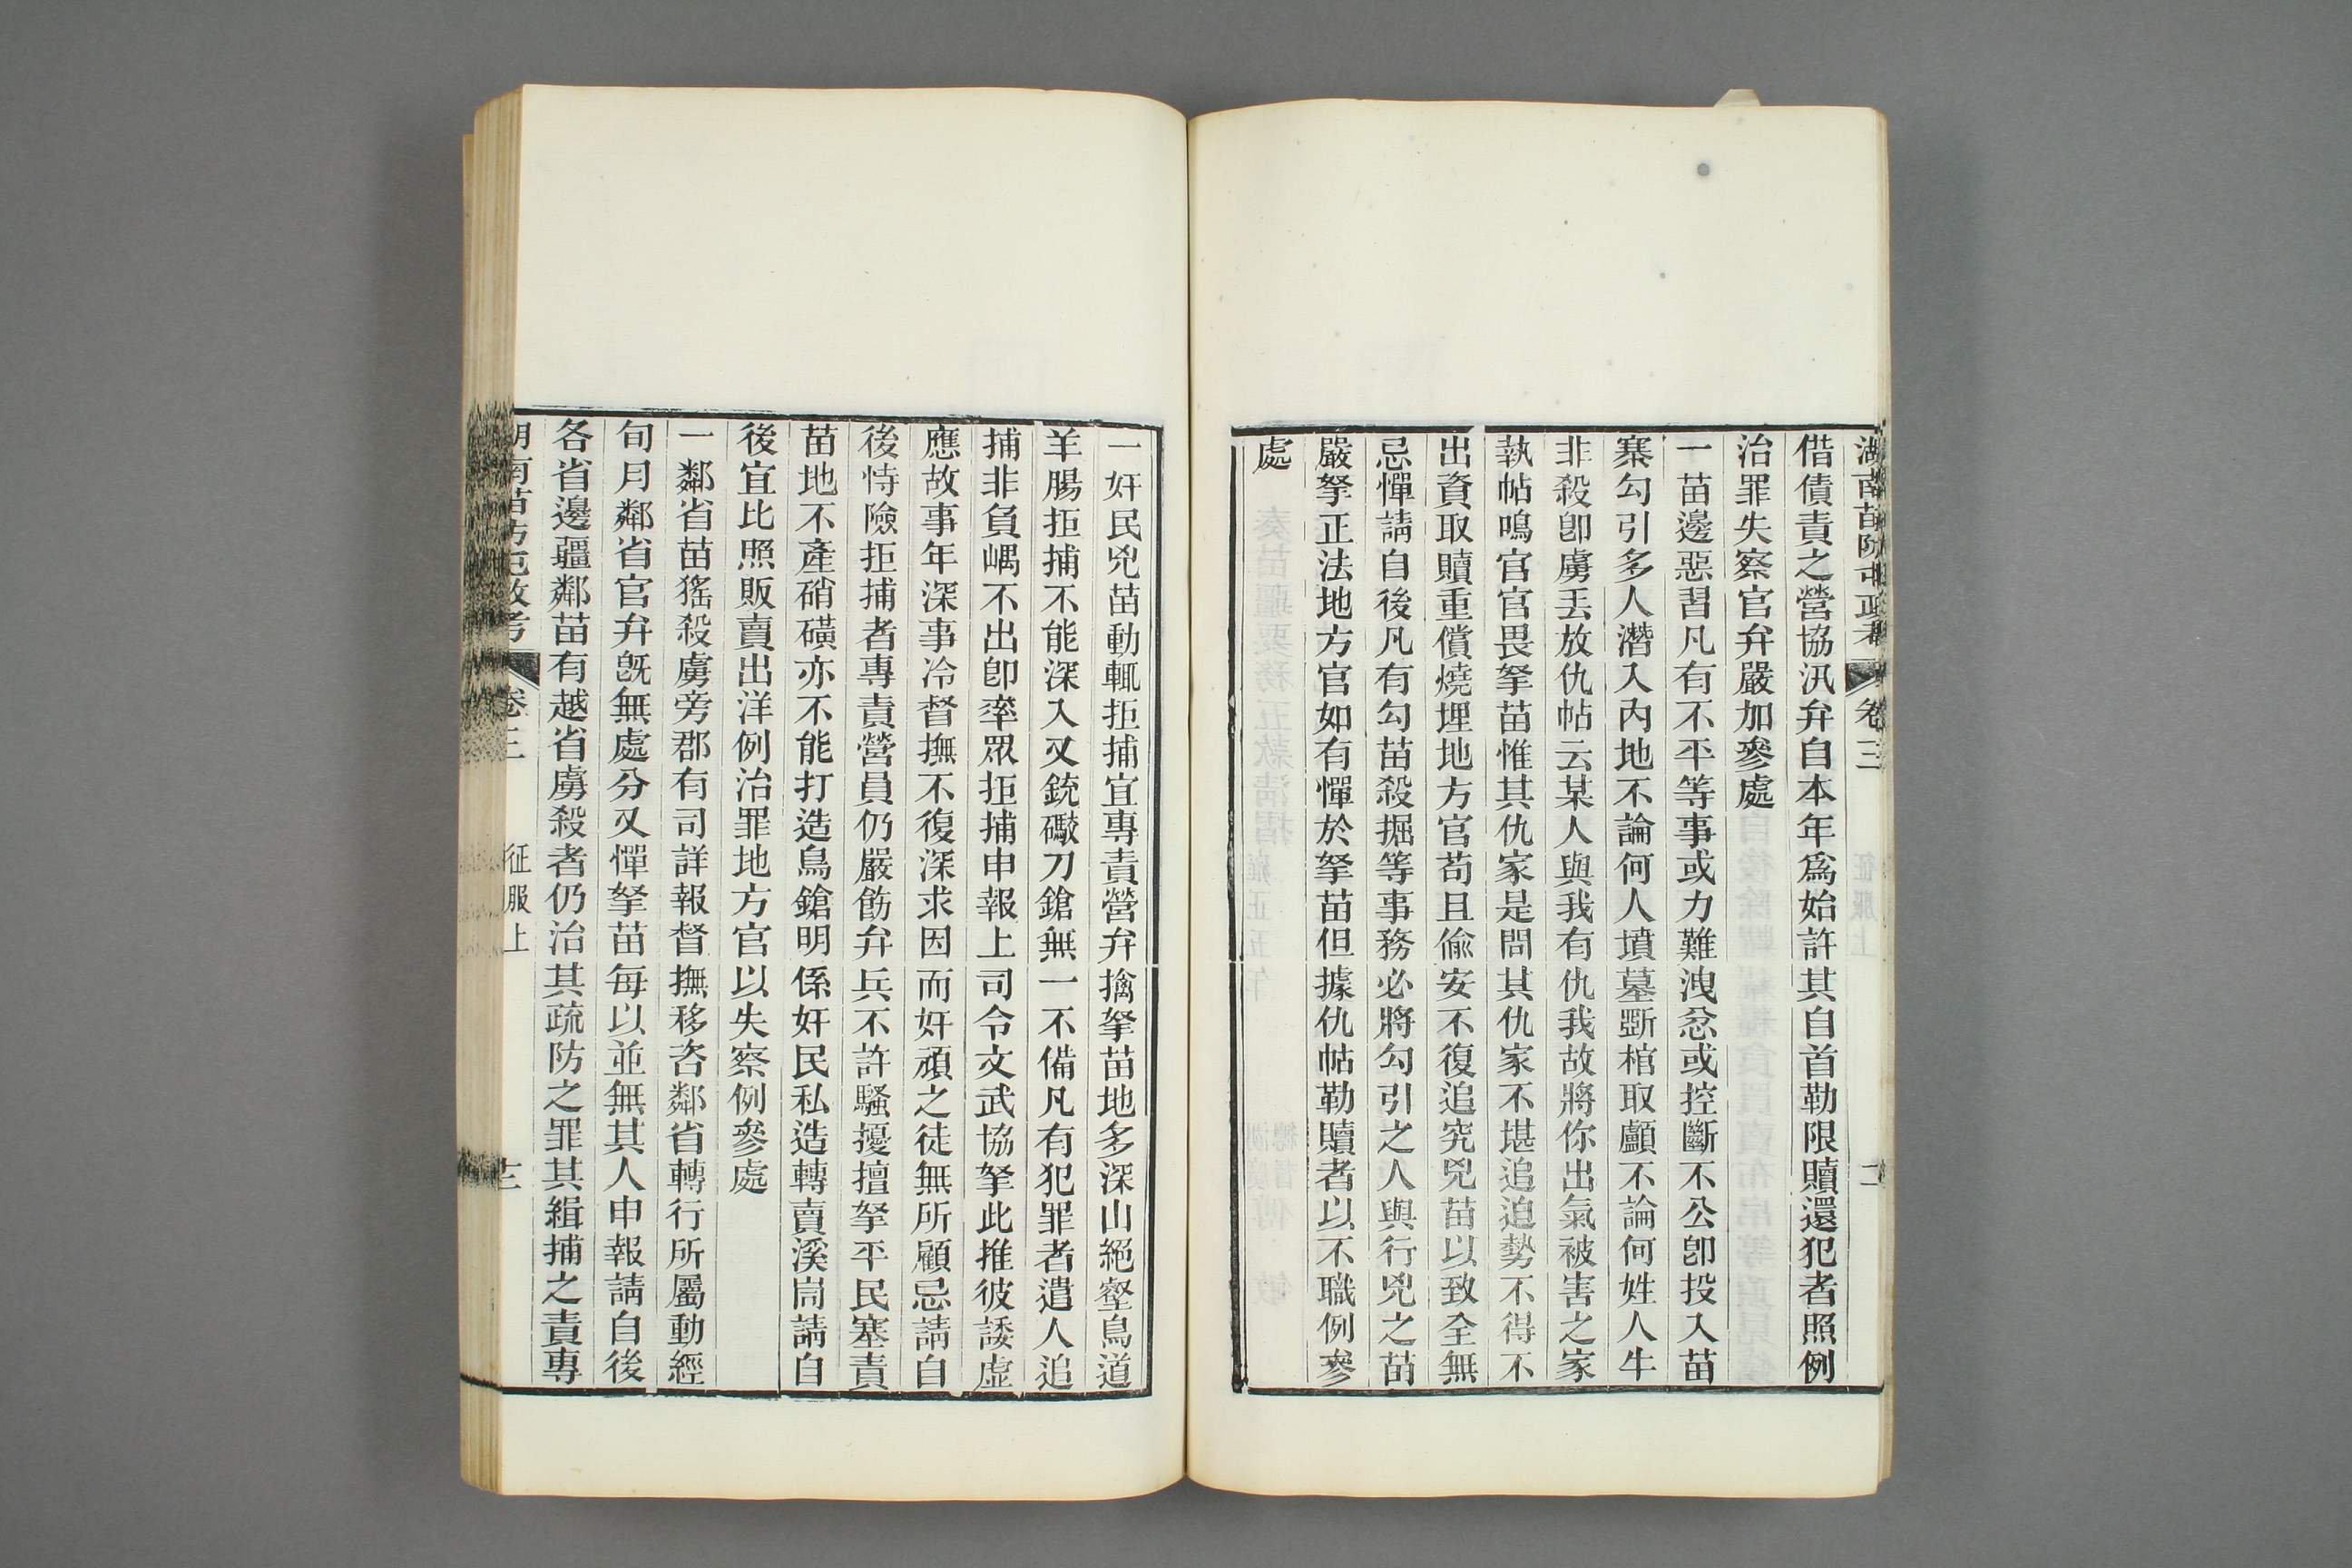 湖南苗防屯政考 卷三 二
借債責之營協汛弁自本年爲始許其自首勒限贖還犯者照例
治罪失察官弁嚴加參處
一苗邊惡習凡有不平等事或力難洩忿或控斷不公卽投入苗
寨勾引多人潛入內地不論何人墳墓斲棺取顱不論何姓人牛
非殺卽虜丟放仇帖云某人與我有仇我故將你出氣被害之家
執帖鳴官官畏拏苗惟其仇家是問其仇家不堪追迫勢不得不
出資取贖重償燒埋地方官苟且偸安不復追究兇苗以致全無
忌憚請自後凡有勾苗殺掘等事務必將勾引之人與行兇之苗
嚴拏正法地方官如有憚於拏苗但據仇帖勒贖者以不職例參
處
一奸民兇苗動輒拒捕宜專責營弁擒拏苗地多深山絕壑鳥道
羊腸拒捕不能深入又銃礮刀鎗無一不備凡有犯罪者遣人追
捕非負嵎不出卽率眾拒捕申報上司令文武協拏此推彼諉虛
應故事年深事冷督撫不復深求因而奸頑之徒無所顧忌請自
後恃險拒捕者專責營員仍嚴飭弁兵不許騷擾擅拏平民塞責
苗地不產硝磺亦不能打造鳥鎗明係奸民私造轉賣溪峝請自
後宜比照販賣出洋例治罪地方官以失察例參處
一鄰省苗猺殺虜旁郡有司詳報督撫移咨鄰省轉行所屬動經
旬月鄰省官弁旣無處分又憚拏苗每以並無其人申報請自後
各省邊疆鄰苗有越省虜殺者仍治其疏防之罪其緝捕之責專
湖南苗防屯政考 卷三 征服上